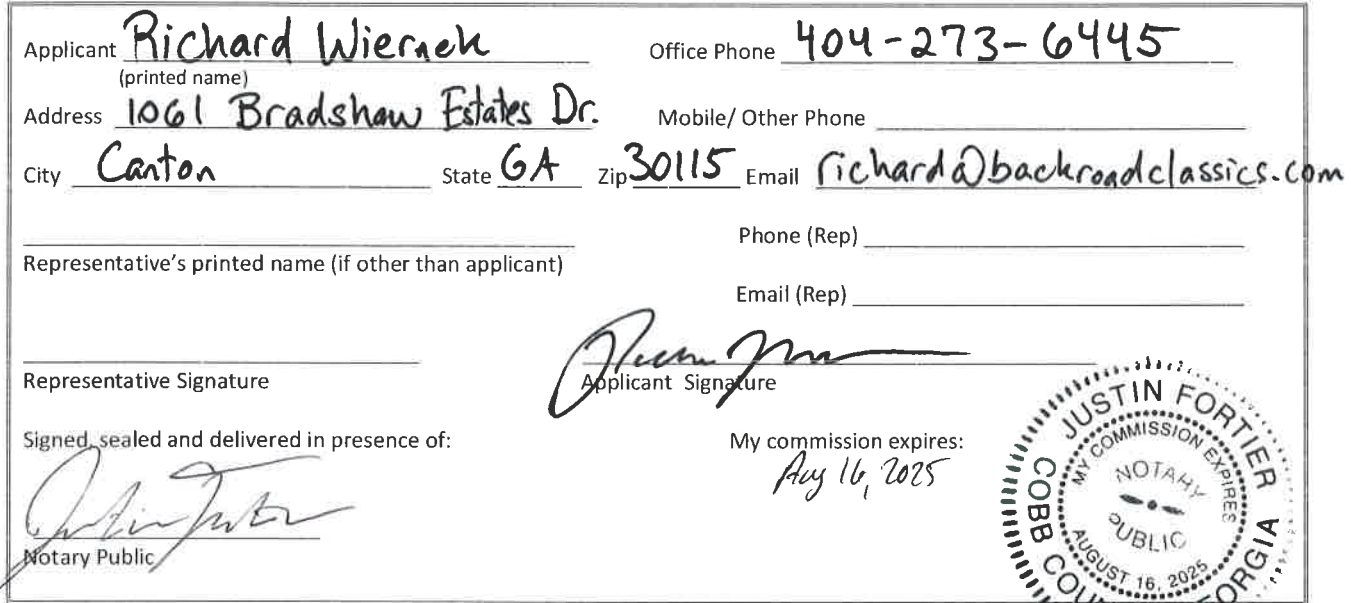 Applicant Richard Wiernek Office Phone 404-273-6445
(printed name)
Address 1061 Bradshaw Estates Dr. Mobile/ Other Phone
City Canton State GA Zip 30115 Email richard@backroadclassics.com
Phone (Rep)
Representative's printed name (if other than applicant)
Email (Rep)
Representative Signature Applicant Signature
Signed, sealed and delivered in presence of: My commission expires:
Aug 16, 2025
Notary Public
JUSTIN FORTIER
COBB COUN
ORGIA
MY COMMISSION EXPIRES
AUGUST 16, 2025
NOTARY
PUBLIC